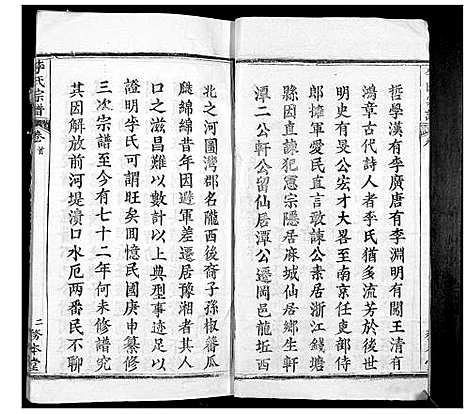 哲學漢有李廣唐有李淵明有闖王清有
鴻章古代詩人者李氏猶多流芳於後世
明有旻公宏才大志在南京任吏部侍
郎擋軍愛民直言敢諫公素居浙江錢塘
縣因直諫犯憲宗隱居麻城仙居鄉生軒
潭二公軒公留仙居潭公遷岡邑龍坵西
李氏宗譜
卷首
北之河圖灣郡名隴西後裔子孫椒蕃瓜
瓞綿綿昔年因避軍差遷居豫湘者其人
口之滋昌難以數計以上典型事迹足以
證明李氏可謂旺矣復憶民國庚申纂修
三次宗譜至今有七十二年何未修譜究
其因解放前河堤潰口水厄兩番民不聊
二
務本堂